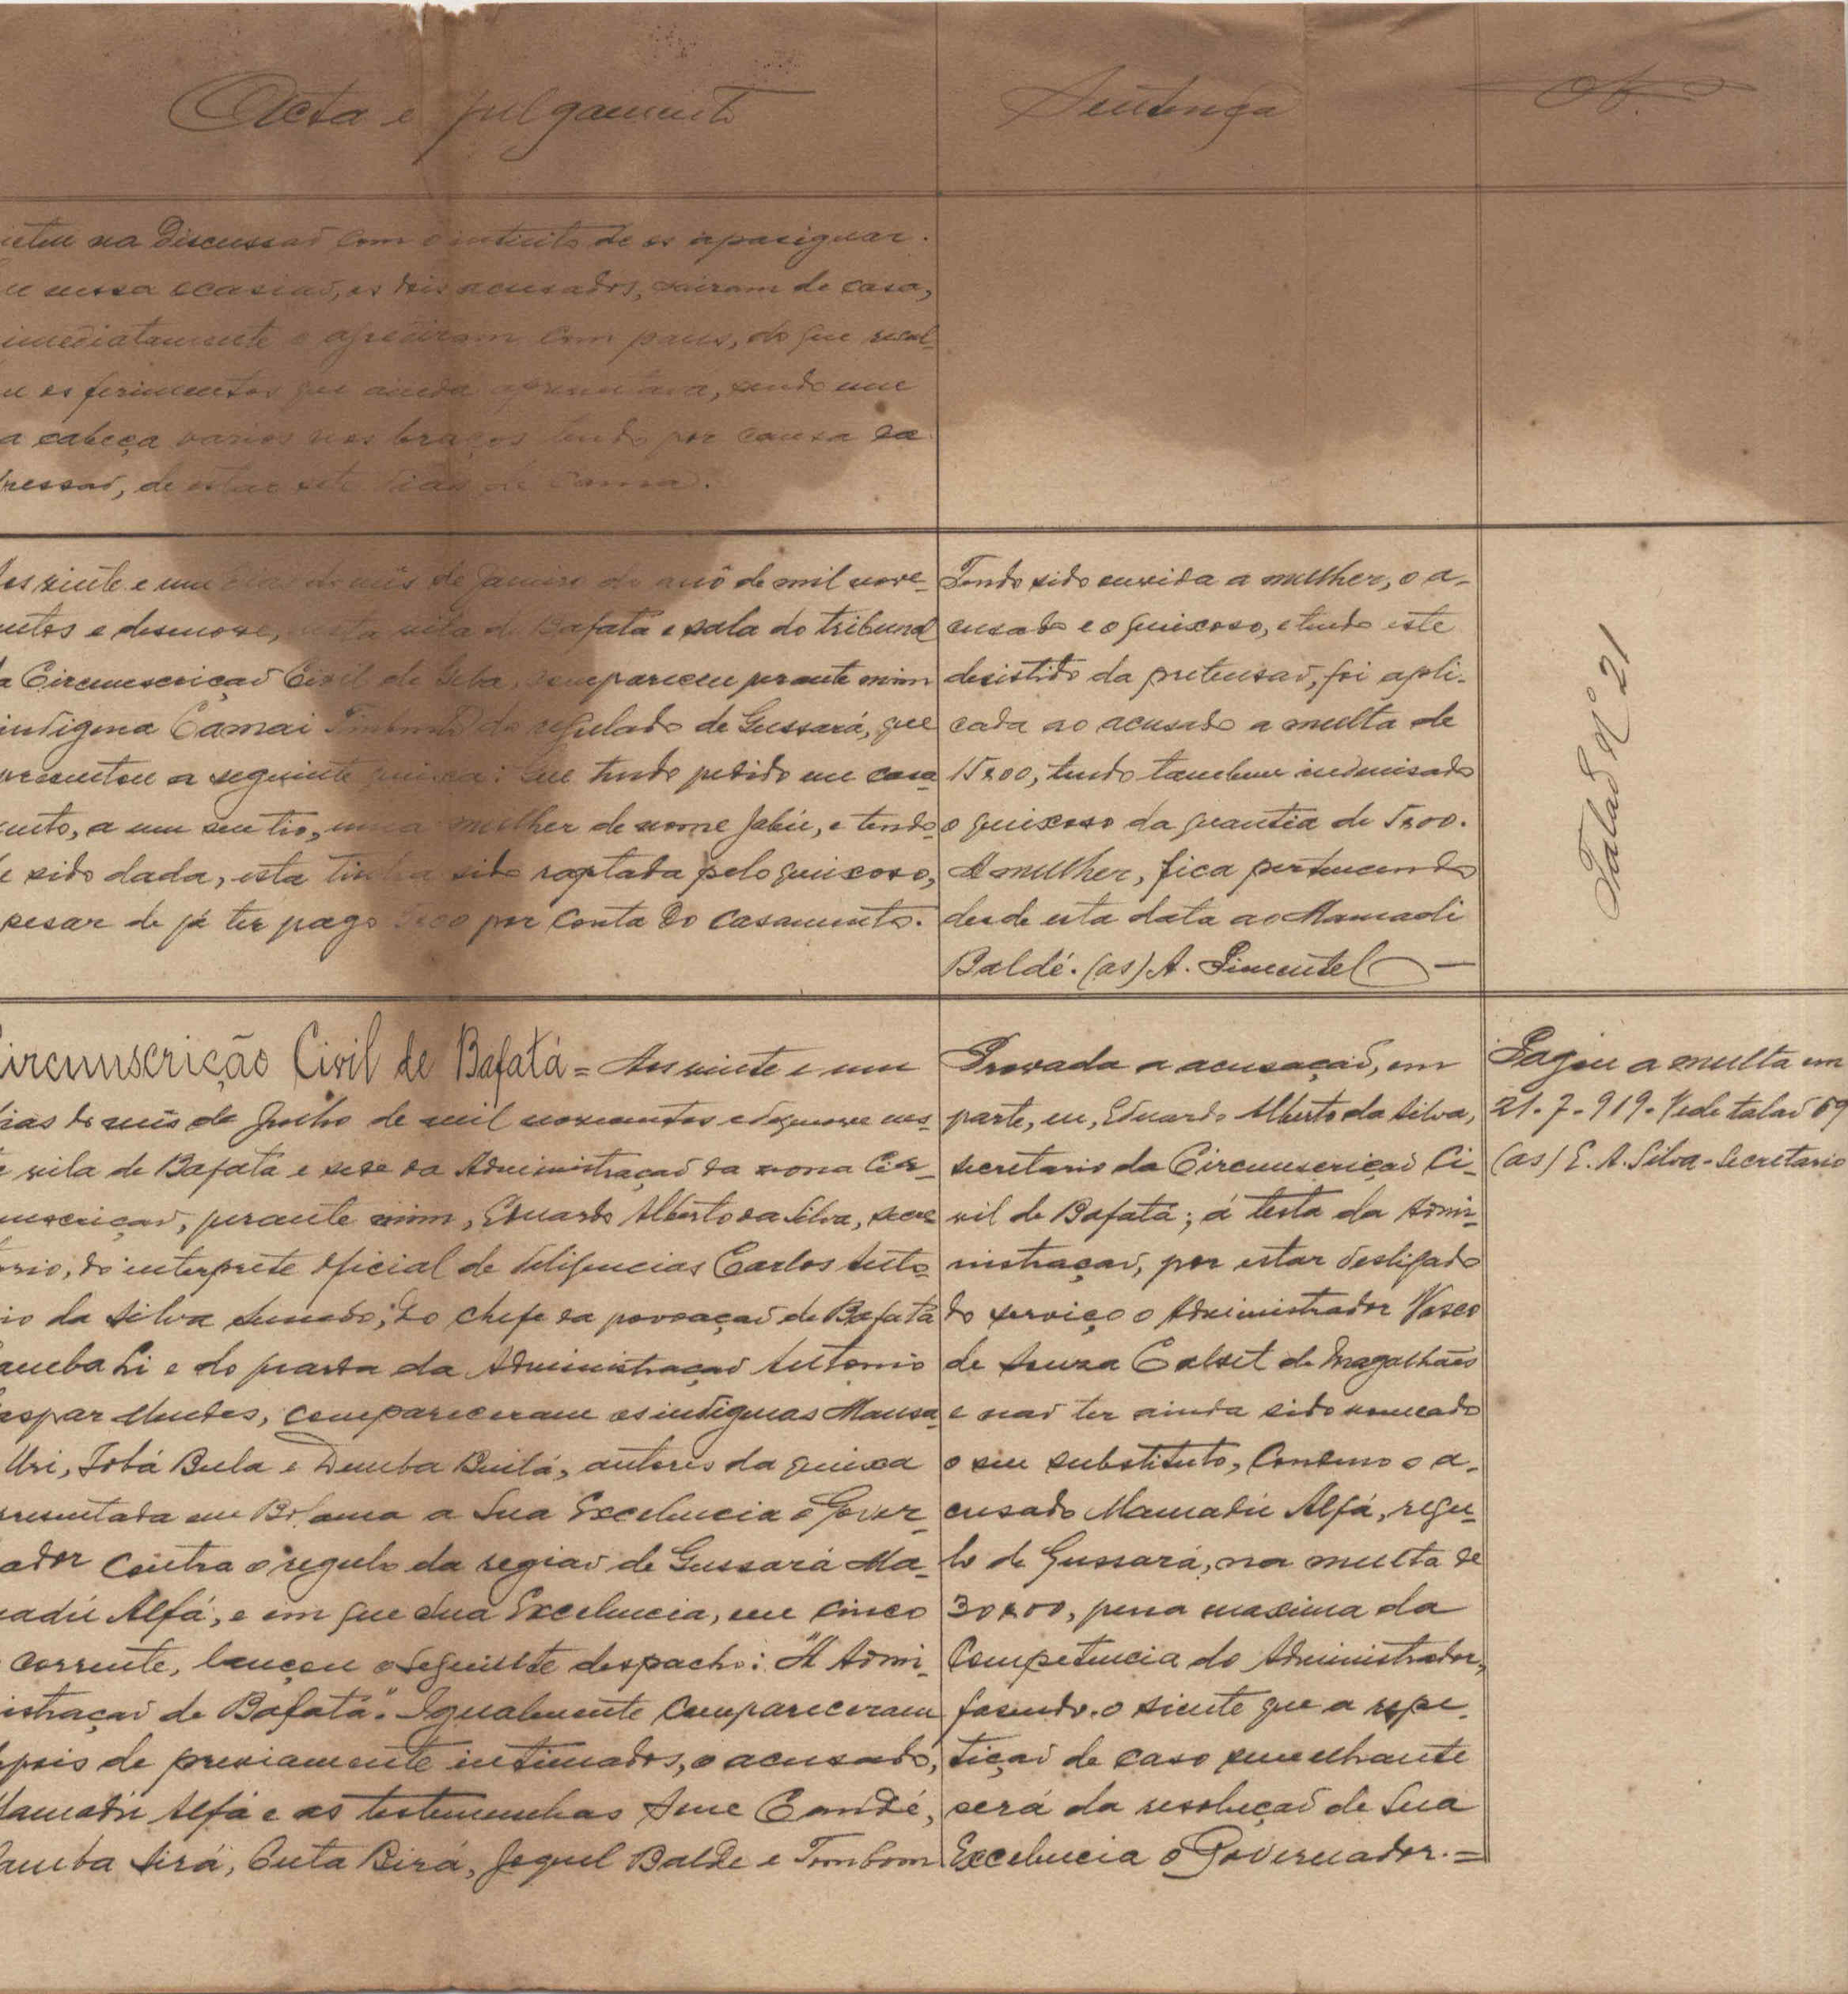 Acta e julgamento
Sentença
Ob.
na discussaõ com o intuito de os apasiguar.
nessa ocasiaõ, os dois acusados, sairam de casa,
imediatamente e agrediram com paus, do que resul-
os ferimentos que ainda apresentava, sendo um
a cabeça varios nos braços tendo por causa da
de estar sete dias de cama.
vinte e um dias do mês de Janeiro do anô de mil nove-
e desenove, nesta vila de Bafatá e sala do tribunal
a Circumscriçaõ Civil de Geba, compareceu perante mim
indigena Camai do regulado de Gussará, que
a seguinte queixa: Que tendo pedido em casa-
a um seu tio, uma mulher de nome Jabú, e tendo-
e sido dada, esta tinha sido raptada pelo queixoso,
pesar de já ter pago 5$00 por conta do casamento.
Tendo sido ouvida a mulher, o a-
cusado e o queixoso, e tendo este
desistido da pretensaõ, foi apli-
cada ao acusado a multa de
15$00, tendo tambem indemnisado
o queixoso da quantia de 5$00.
A mulher, fica pertencendo
desde esta data ao Mamadi
Baldé. (as) A. Pimentel
Talaõ Nº 21
Circunscrição Civil de Bafatá = Aos vinte e um
dias do mês de Julho de mil novecentos e dezenove nes-
vila de Bafatá e sede da Administraçaõ da mesma Cir-
perante mim, Eduardo Alberto da Silva, secre-
do interprete oficial de diligencias Carlos Anto-
nio da Silva do chefe da povoaçaõ de Bafatá
e do guarda da Administraçaõ Antonio
Mendes, compareceram os indigenas Mansa-
Uri, Jobá Bula e Demba Builá, autores da queixa
em Bolama a Sua Excelencia o Gover-
ador contra o regulo da regiaõ de Gussará Ma-
madú Alfá, e em que Sua Excelencia, em cinco
corrente, lançou o seguinte despacho: "A Admi-
nistraçaõ de Bafatá". Igualmente compareceram
depois de previamente intimados, o acusado,
Mamadú Alfá e as testemunhas Candé,
Sirá, Cuta Birá, Joquel Balde e Tombom
Provada a acusaçaõ, em
parte, eu, Eduardo Alberto da Silva,
secretario da Circumscriçaõ Ci-
vil de Bafatá; á testa da Admi-
nistraçaõ, por estar desligado
do serviço o Administrador Vasco
de Souza Calvet de Magalhães
e naõ ter ainda sido nomeado
o seu substituto, condeno o a-
cusado Mamadú Alfá, regu-
lo de Gussará, na multa de
30$00, pena maxima da
competencia do Administrador,
fasendo-o siente que a repe-
tiçaõ de caso semelhante
será da resoluçaõ de Sua
Excelencia o Governador. =
Pagou a multa em
21-7-919. Vede talaõ 69
(as) E. A. Silva - Secretario